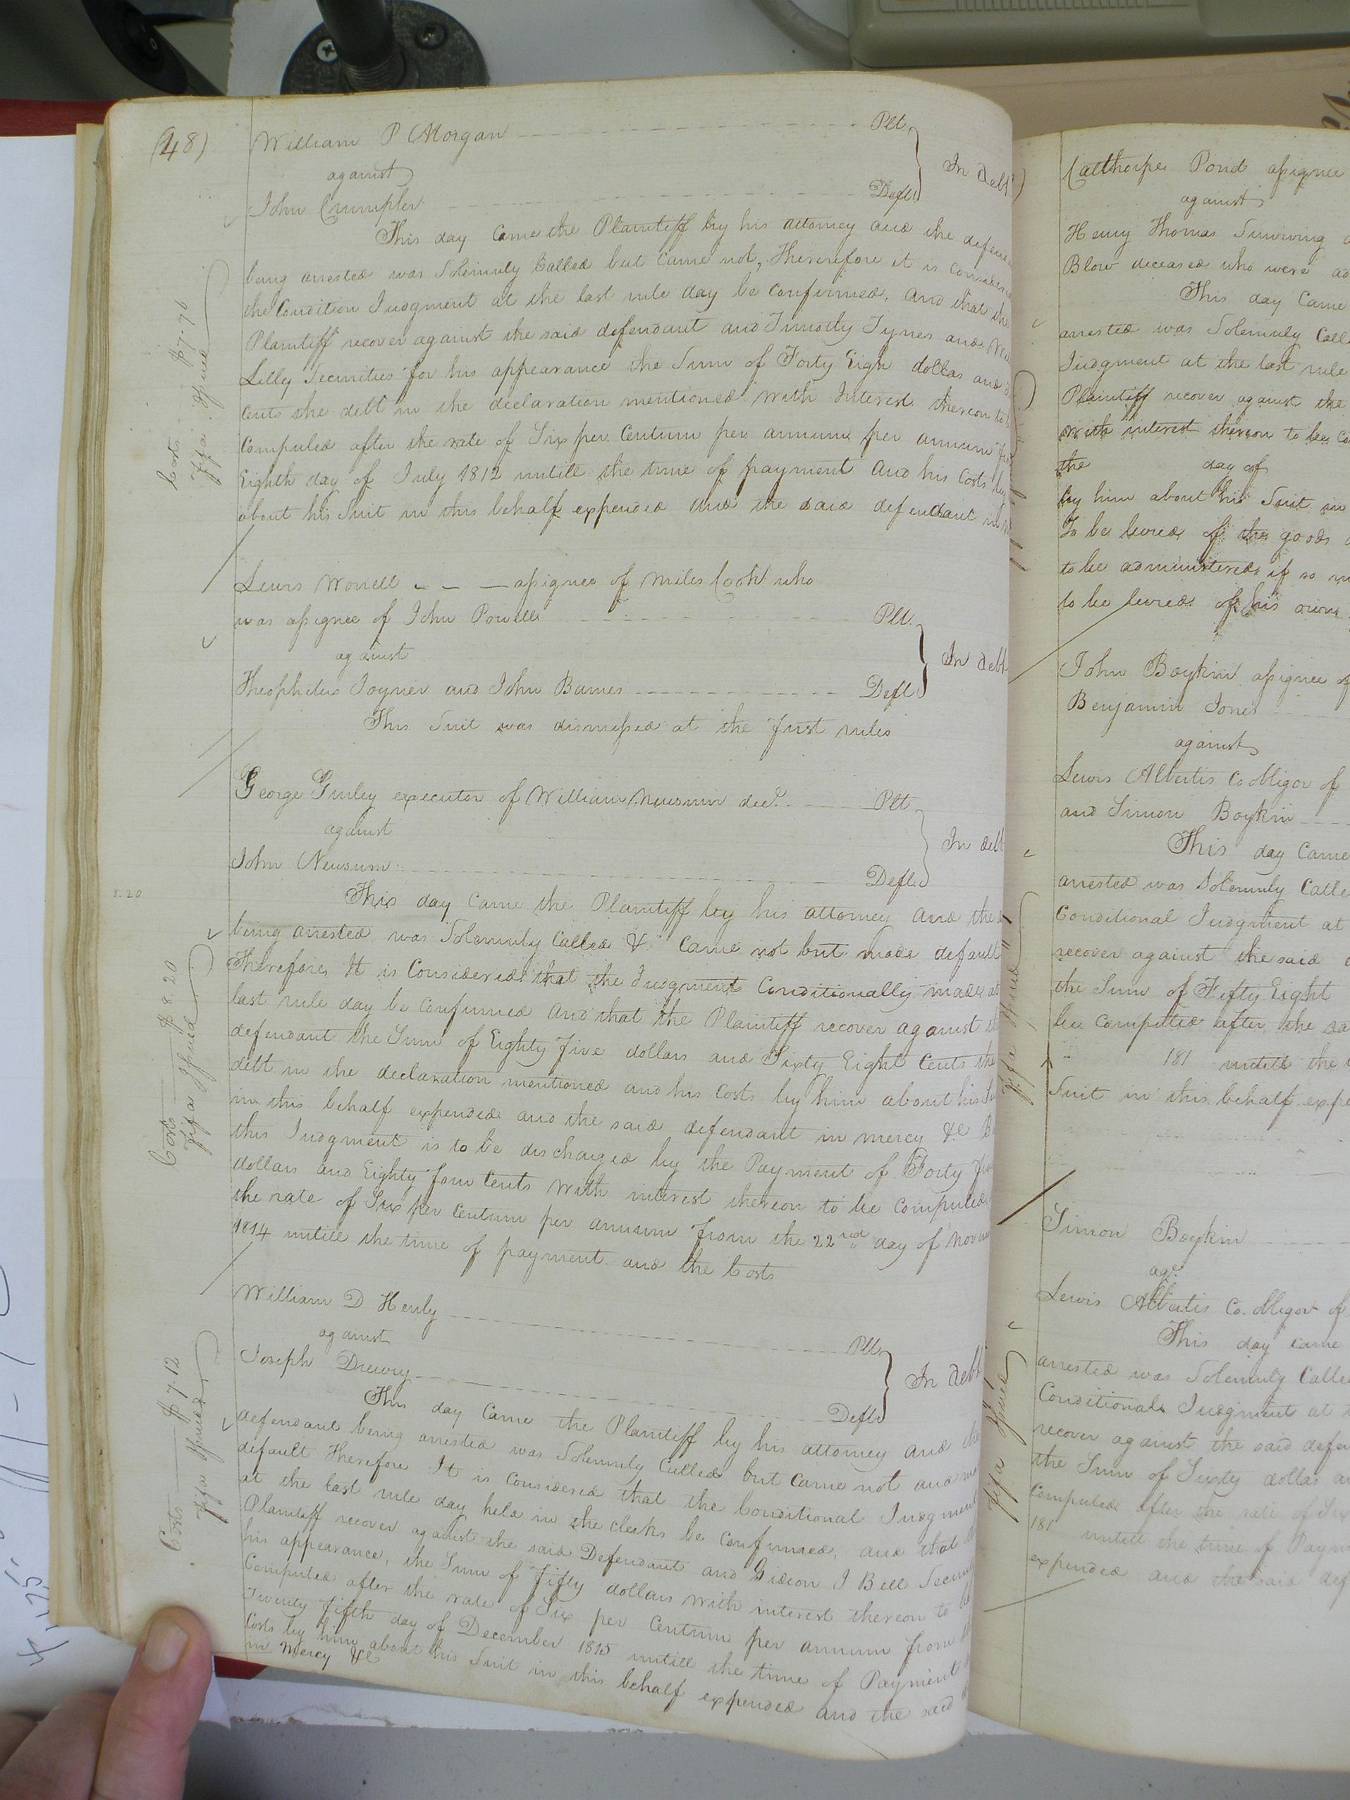 (48)
William P Morgan Plt.
against In debt
John Crumpler Deft
This day came the Plaintiff by his attorney and the defend
being arrested was Solemnly Called but came not, Therefore it is consider
the Condition Judgment at the last rule day be confirmed, and that the
Plaintiff recover against the said defendant and Timothy Tynes and
Lilly Securities for his appearance the Sum of Forty Eigh dollas and
Cents the debt in the declaration mentioned with Interest thereon to
Computed after the rate of Six per Centum per annum per annum
Eighth day of July 1812 untill the time of payment and his Costs by
about his Suit in this behalf expended and the said defendant in
Costs $7.76
fifa issued
Lewis Worrell assignee of Miles Cook who
was assignee of John Powell Plt.
against In debt
Theophilus Joyner and John Barnes Deft
This Suit was dismissed at the first rules
George Gurley executor of William Newsum decd. Plt
against In debt
John Newsum Deft
This day came the Plaintiff by his attorney and the
being arrested was Solemnly Called & Came not but made default
Therefore It is Considered that the Judgment Conditionally made at
last rule day be confirmed and that the Plaintiff recover against the
defendant the Sum of Eighty five dollars and Sixty Eight Cents the
debt in the declaration mentioned and his Costs by him about his Su
in this behalf expended and the said defendant in mercy &c B
this Judgment is to be discharged by the Payment of Forty
dollars and Eighty four Cents with interest thereon to be computed
the rate of Six per Centum per annum from the 22nd day of Novem
1814 untill the time of payment and the Costs
8.20
Costs $8.20
fifa issued
William D Henly Plt
against In debt
Joseph Drewry Deft
This day came the Plaintiff by his attorney and the
defendant being arrested was Solemnly Called but came not and
default Therefore It is Considered that the Conditional Judgment
at the last rule day held in the clerks be confirmed, and that the
Plaintiff recover against the said Defendant and Gideon J Bell Securi
his appearance, the Sum of Fifty dollars with interest thereon to be
Computed after the rate of Six per Centum per annum from the
Twenty fifth day of December 1815 untill the time of Payment
Costs by him about his Suit in this behalf expended and the said
in mercy &c
Costs $7.12
fifa issued
Calthorpe Pond assignee
against
Henry Thomas Surviving
Blow deceased who were
This day Came
arrested was Solemnly Call
Judgment at the last rule
Plaintiff recover against the
with interest thereon to be Co
the day of
by him about his Suit in
To be levied of the goods
to be administered if so
to be levied of his own
John Boykin assignee of
Benjamin Jones
against
Lewis Albertis Co.obligor of
and Simon Boykin
This day Came
arrested was Solemnly Calle
Conditional Judgment at
recover against the said
the Sum of Fifty Eight
be computed after the
181 untill the
Suit in this behalf expe
fifa issued
Simon Boykin
agt.
Lewis Albertis Co.obligor of
This day came
arrested was Solemnly Calle
Conditional Judgment at
recover against the said defen
the Sum of Sixty dollas
Computed after the rate of Six
181 untill the time of Paym
expended and the said def
fifa issued